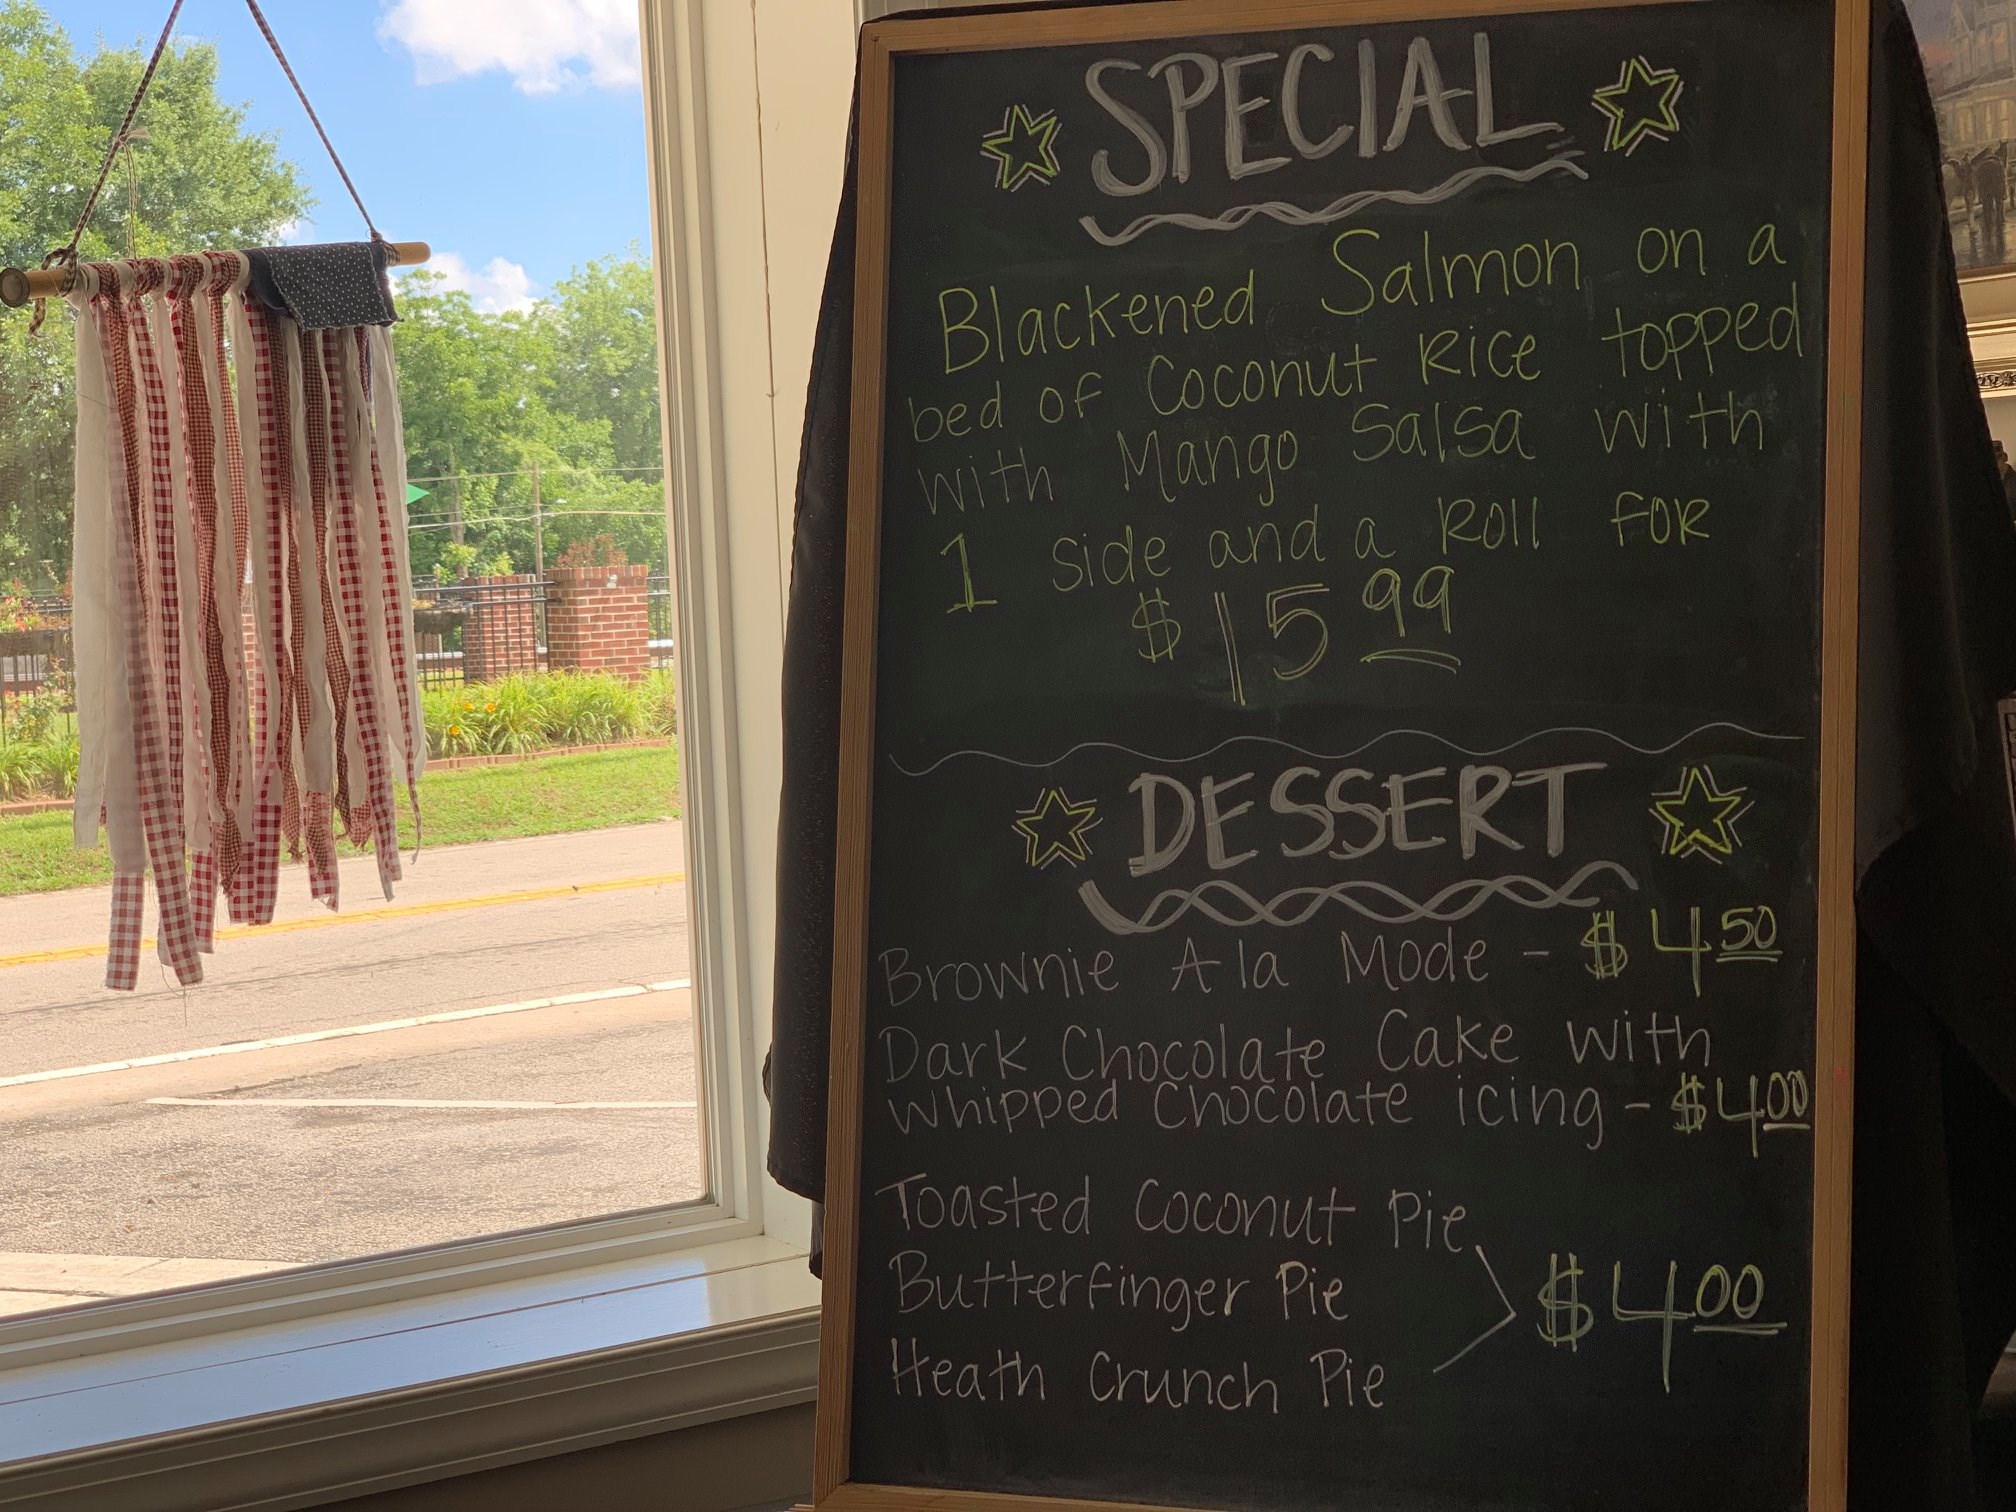 SPECIAL
Blackened Salmon on a
bed of Coconut Rice topped
with Mango Salsa with
1 side and a Roll for
$15.99
DESSERT
Brownie A la Mode - $4.50
Dark Chocolate Cake with
whipped Chocolate icing - $4.00
Toasted Coconut Pie
Butterfinger Pie $4.00
Heath Crunch Pie